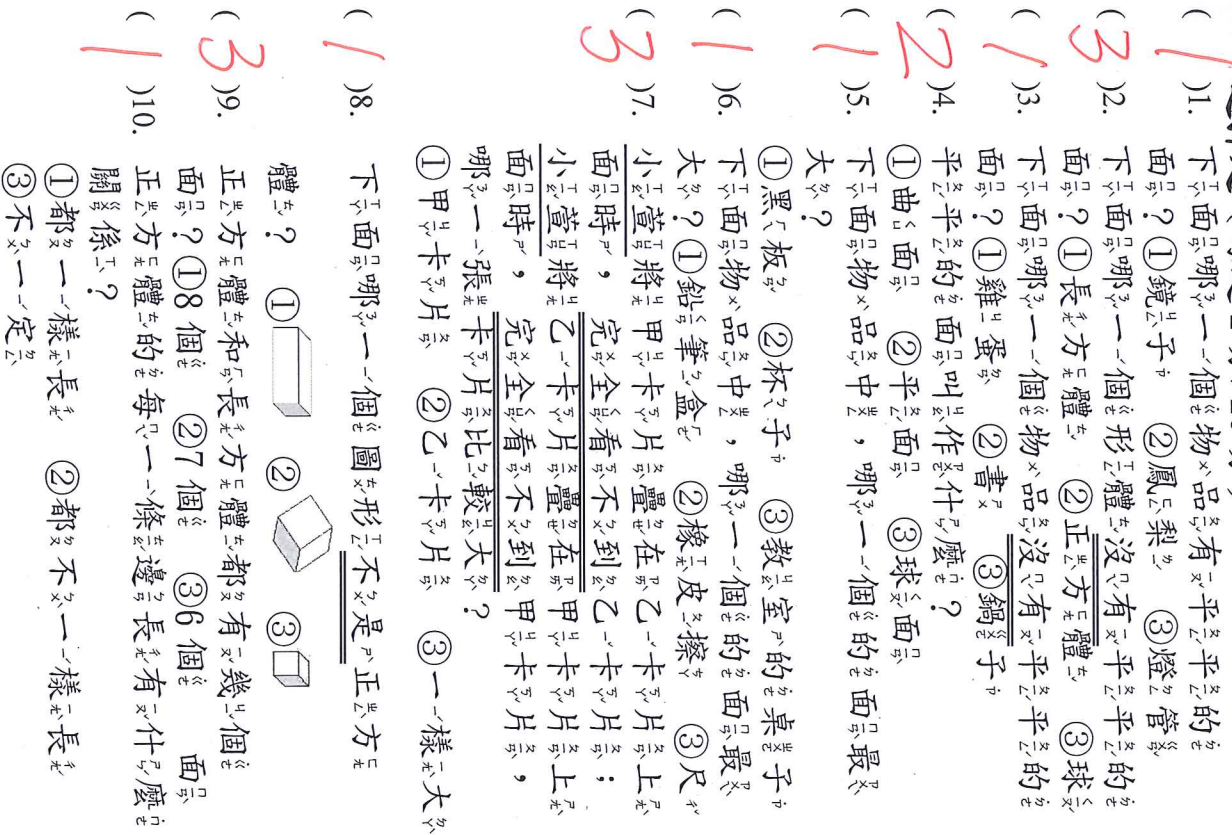 ( 1 )1. 下面哪一個物品有平平的
面？①鏡子 ②鳳梨 ③燈管
( 3 )2. 下面哪一個形體沒有平平的
面？①長方體 ②正方體 ③球
( 1 )3. 下面哪一個物品沒有平平的
面？①雞蛋 ②書 ③鍋子
( 2 )4. 平平的面叫作什麼？
①曲面 ②平面 ③球面
( 1 )5. 下面物品中，哪一個的面最
大？
①黑板 ②杯子 ③教室的桌子
( 1 )6. 下面物品中，哪一個的面最
大？①鉛筆盒 ②橡皮擦 ③尺
( 3 )7. 小萱將甲卡片疊在乙卡片上
面時，完全看不到乙卡片；
小萱將乙卡片疊在甲卡片上
面時，完全看不到甲卡片，
哪一張卡片比較大？
①甲卡片 ②乙卡片 ③一樣大
( 1 )8. 下面哪一個圖形不是正方
體？ ① ② ③
( 3 )9. 正方體和長方體都有幾個
面？①8個 ②7個 ③6個 面
( 1 )10. 正方體的每一條邊長有什麼
關係？
①都一樣長 ②都不一樣長
③不一定